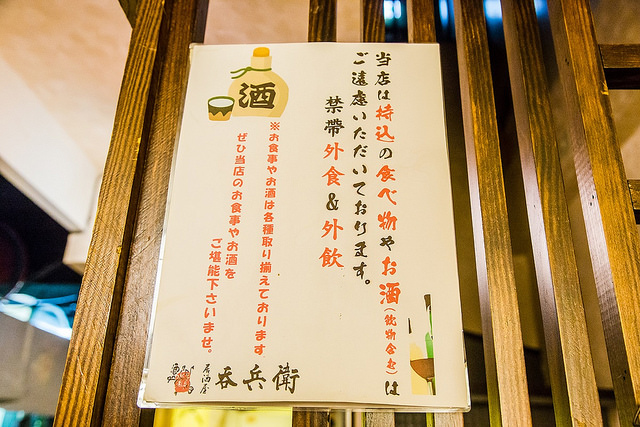 当店は持込の食べ物やお酒(飲物含む)は
ご遠慮いただいております。
禁帶外食&外飲
酒
※お食事やお酒は各種取り揃えております
ぜひ当店のお食事やお酒を
ご堪能下さいませ。
居酒屋
呑兵衛